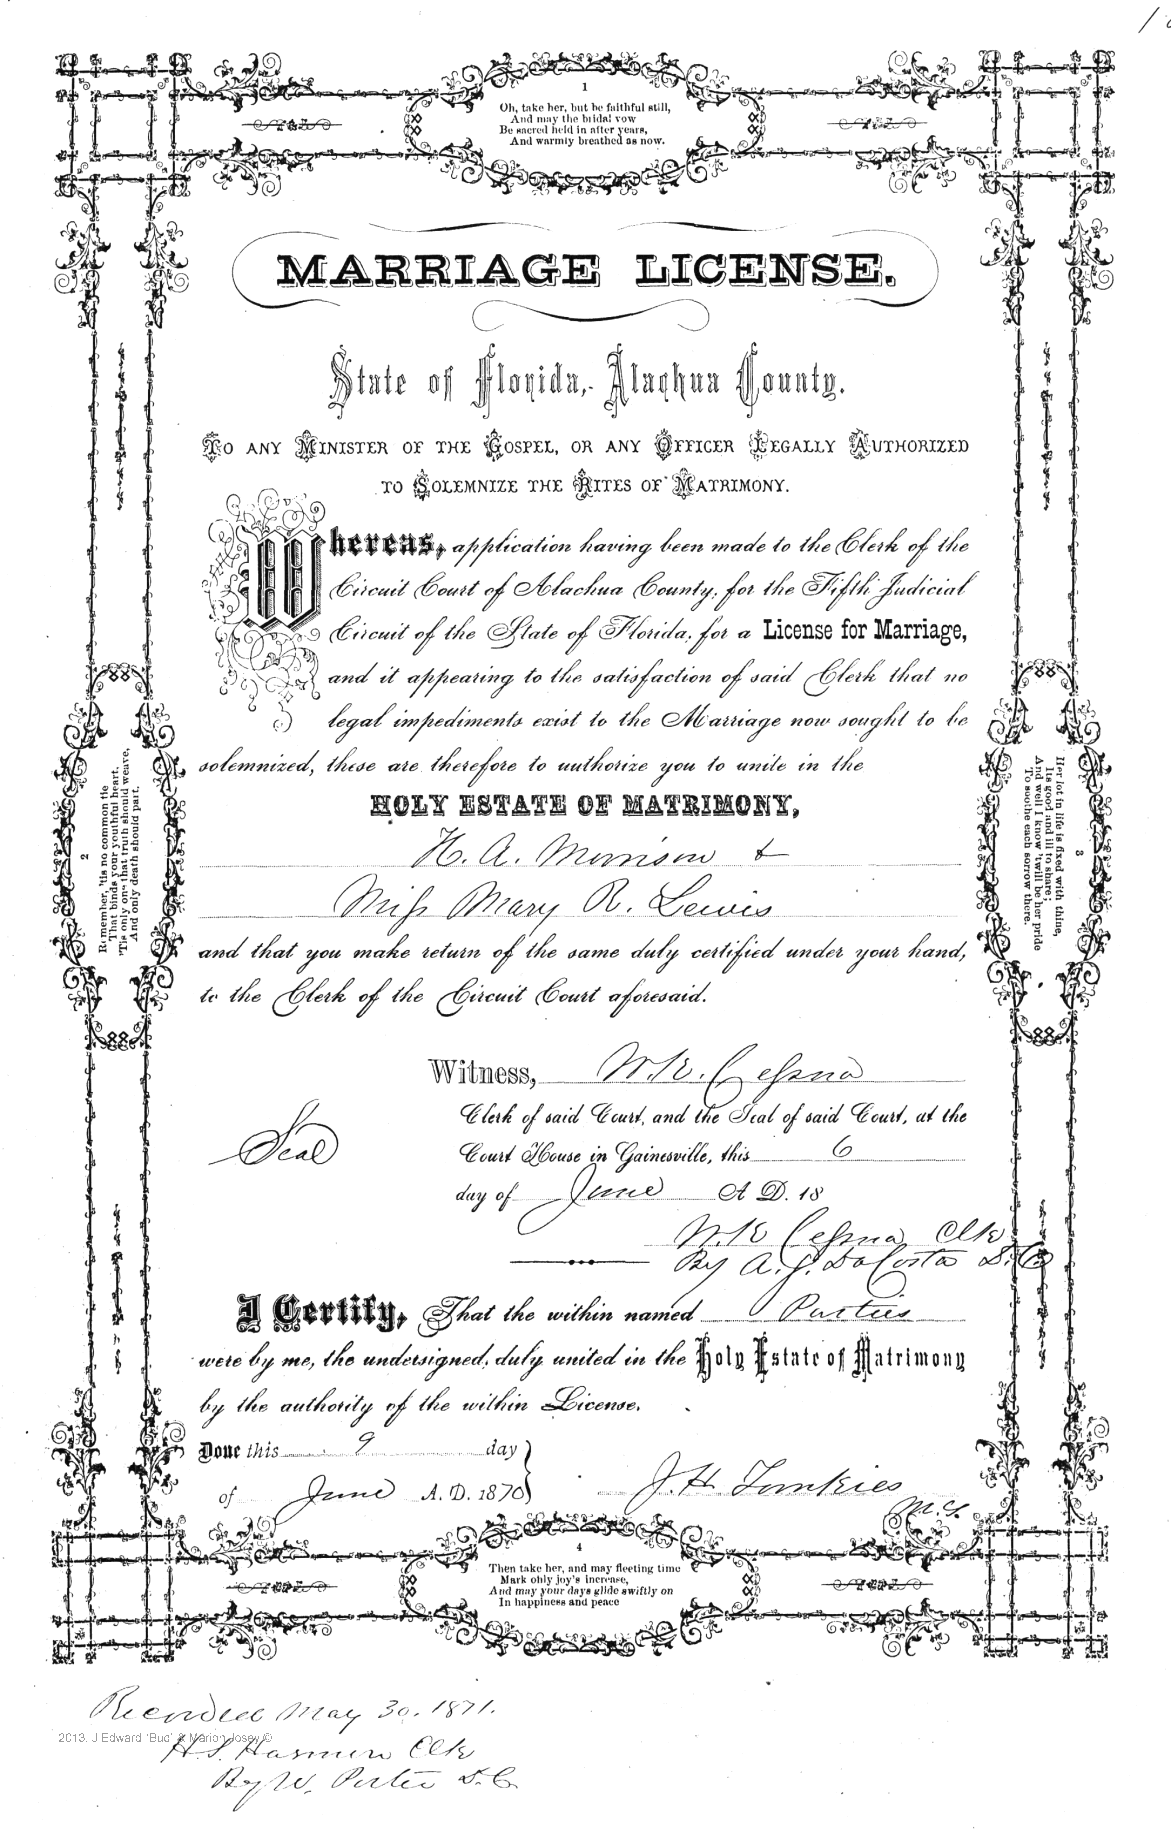 1
Oh, take her, but be faithful still,
And may the bidal vow
Be sacred held in after years,
And warmly breathed as now.
MARRIAGE LICENSE.
State of Florida, Alachua County.
To any Minister of the Gospel, or any Officer Legally Authorized
to Solemnize the Rites of Matrimony.
Whereas, application having been made to the Clerk of the
Circuit Court of Alachua County, for the Fifth Judicial
Circuit of the State of Florida, for a License for Marriage,
and it appearing to the satisfaction of said Clerk that no
legal impediments exist to the Marriage now sought to be
solemnized, these are therefore to authorize you to unite in the
HOLY ESTATE OF MATRIMONY,
H. A. Morrison &
Miss Mary R. Lewis
and that you make return of the same duly certified under your hand,
to the Clerk of the Circuit Court aforesaid.
2
Remember, 'tis no common tie
That binds your youthful heart.
'Tis only one that truth should weave,
And only death should part.
3
Her lot in life is fixed with thine,
Its good and ill to share;
And well I know 'twill be her pride
To soothe each sorrow there.
Witness, W. K. Cessna
Clerk of said Court, and the Seal of said Court, at the
Seal
Court House in Gainesville, this 6
day of June A D. 18
W. K Cessna Clk
By A. J. DaCosta D. C.
I Certify, That the within named Parties
were by me, the undersigned, duly united in the Holy Estate of Matrimony
by the authority of the within License.
Done this 9 day
of June A. D. 1870
J. H. Tomkies
M. G.
4
Then take her, and may fleeting time
Mark only joy's increase,
And may your days glide swiftly on
In happiness and peace
Recorded May 30, 1871.
2013. J Edward "Bud" & Marion Josey ©
Clk
By W. Porter D. C.